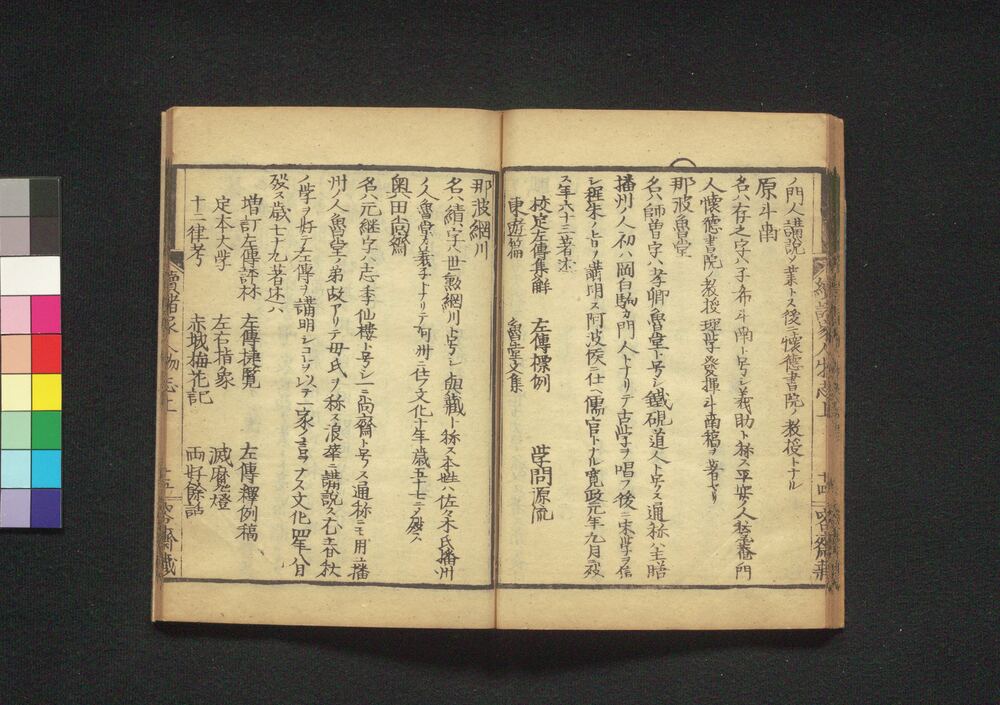 ノ門人講説ヲ業トス後ニ懐徳書院ノ教授トナル
原斗南
名ハ存之字ハ子布斗南ト号シ義助ト称ス平安ノ人 門
人懐徳書院ノ教授理学發揮斗南稿ヲ著セリ
那波魯堂
名ハ師曽字ハ孝卿魯堂ト号シ鐵硯道人ト号ス通称ハ主膳
播州ノ人初ハ岡白駒カ門人トナリテ古学ヲ唱フ後ニ宋学ヲ信
シ程朱ノ ヲ講明ス阿波侯ニ仕ヘ儒官トナル寛政元年九月ニ歿
ス年六十三著述
校定左傳集解 左傳標例 学問源流
東遊篇 魯堂文集
續諸家人物志上 十四
那波網川
名ハ績字ハ世勲網川ト号シ與藏ト称ス本姓ハ佐々木氏播州
ノ人魯堂カ義子トナリテ阿州ニ仕フ文化十年歳五十七ニノ歿ス
奥田尚齋
名ハ元継字ハ志季仙樓ト号シ一ニ尚齋ト号ス通称ニモ用ユ播
州ノ人魯堂ノ弟故アリテ母氏ヲ称ス浪華ニ講説ス尤春秋
ノ学ヲ好テ左傳ヲ講明シコレヲ以テ一家ノ言ヲナス文化四年八月
歿ス歳七十九著述ハ
増訂左傳評林 左傳捷覧 左傳釋例稿
定本大学 左右指象 滅魔燈
十二律考 赤城梅花記 両好餘話
續諸家人物志上 十五